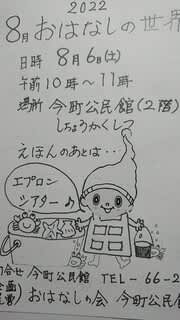 2022
8月おはなしの世界
日時 8月6日(土)
午前10時～11時
場所 今町公民館(2階)
しちょうかくしつ
えほんのあとは…
エプロン
シアター♪
合せ 今町公民館 TEL-66-2
おはなしの会 今町公民館